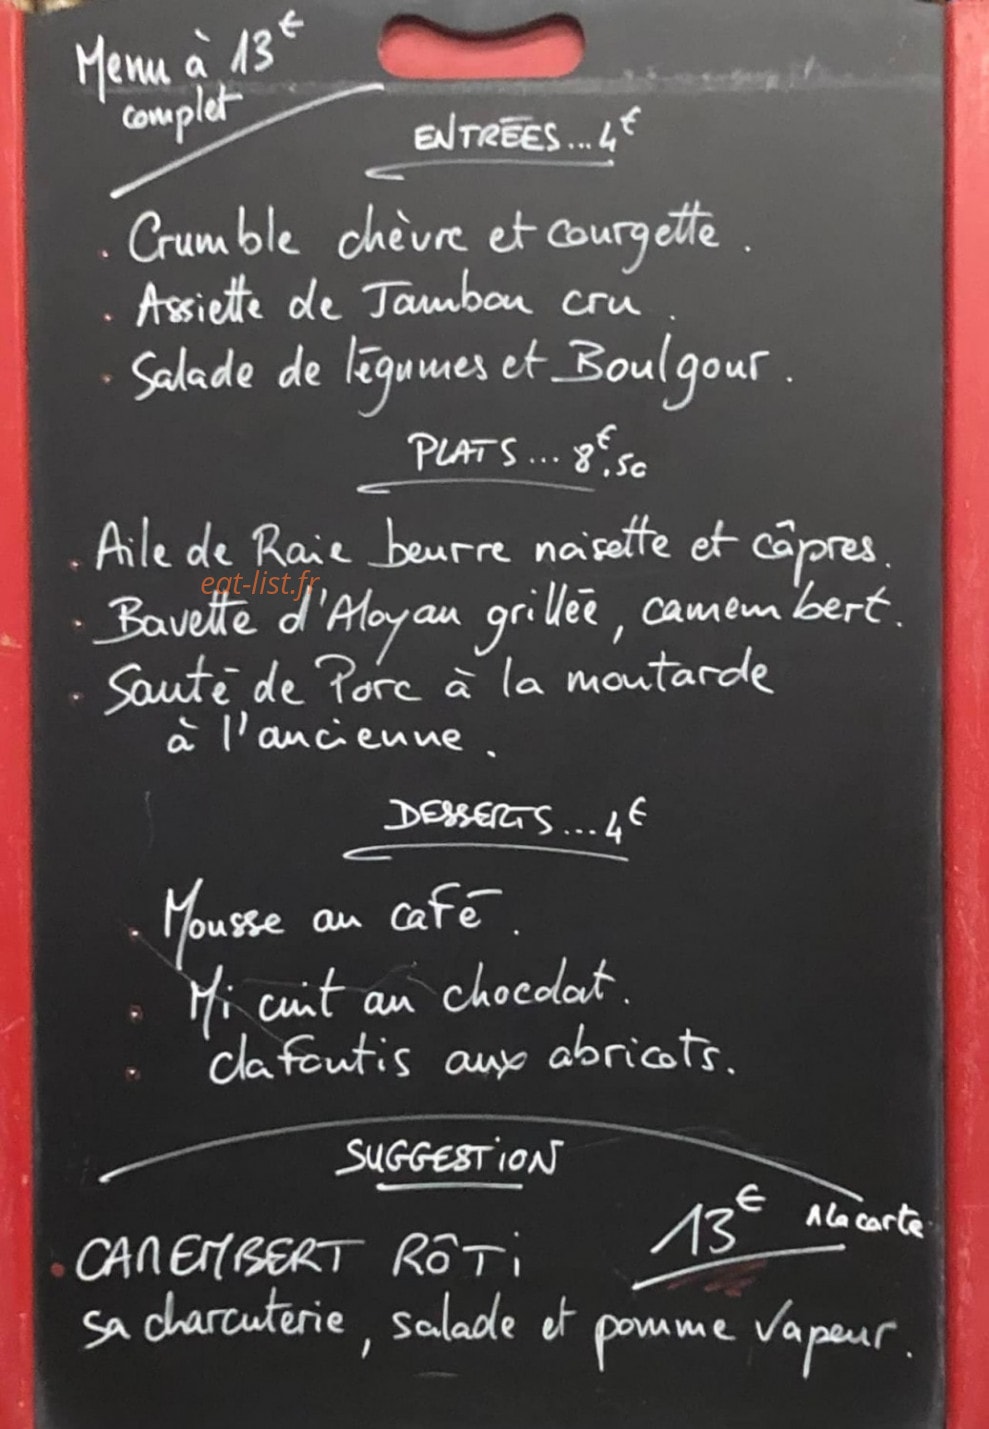 Menu à 13€
complet
ENTRÉES...4€
. Crumble chèvre et courgette.
. Assiette de Jambon cru.
. Salade de légumes et Boulgour.
PLATS...8€.50
. Aile de Raie beurre noisette et câpres.
eat-list.fr
. Bavette d'Aloyau grillée, camembert.
. Sauté de Porc à la moutarde
à l'ancienne.
DESSERTS...4€
. Mousse au café.
. Mi cuit au chocolat.
. clafoutis aux abricots.
SUGGESTION
13€ A la carte
. CAMEMBERT RÔTi
sa charcuterie, salade et pomme vapeur.